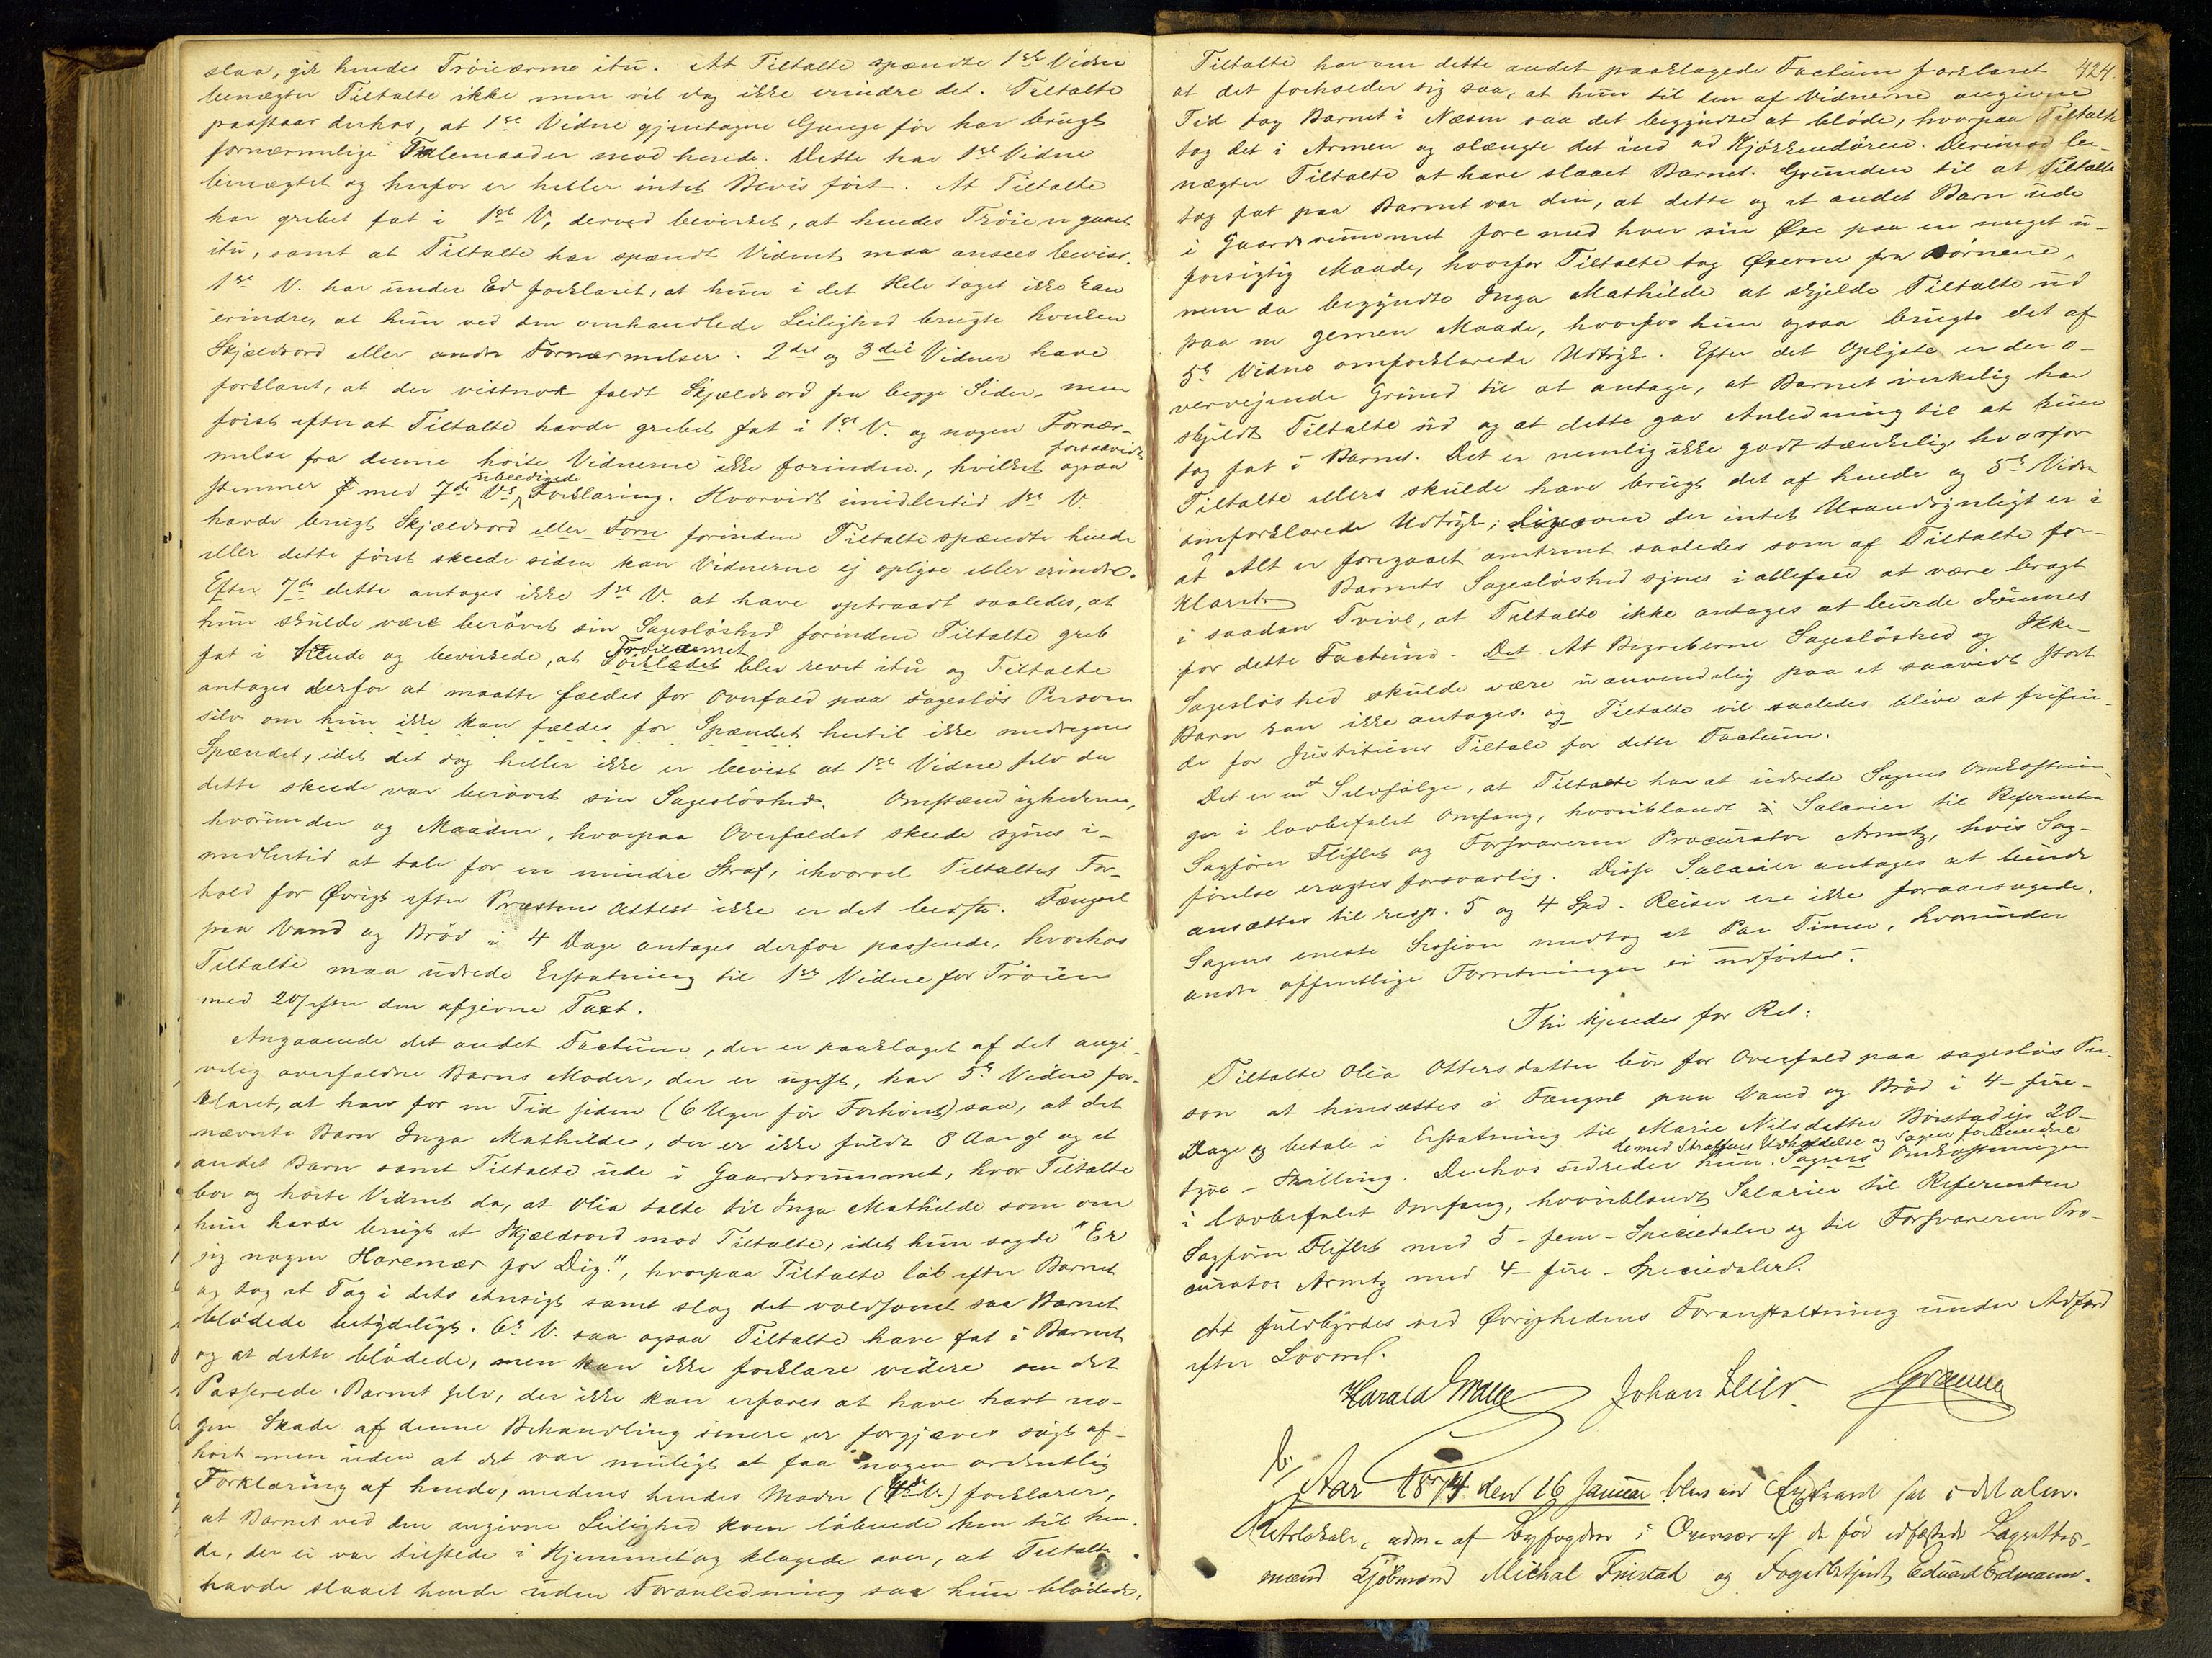 slaa, gik hendes Tröieærme itu. At Tiltalte spændte 1ste Vidne
benægter Tiltalte ikke men vil dog ikke erindre det. Tiltalte
paastaar derhos, at 1ste Vidne gjentagne Gange för har brugt
fornærmelige Talemaader mod hende. Dette har 1ste Vidne
benægtet og herfor er heller intet Bevis fört. At Tiltalte
har grebet fat i 1ste V, derved bevirket, at hendes Tröie er gaaet
itu, samt at Tiltalte har spændt Vidnet maa ansees bevist.
1ste V. har under Ed forklaret, at hun i det Hele taget ikke kan
erindre, at hun ved den omhandlede Leilighed brugte hverken
Skjældsord eller andre Fornærmelser. 2det og 3die Vidner have
forklaret, at der vistnok faldt Skjældsord fra begge Sider, men
först efter at Tiltalte havde grebet fat i 1ste V. og nogen Fornær-
melse fra denne hörte Vidnerne ikke forinden, hvilket ogsaa forsaavidt
stemmer med 7de V.s ubeedigede Forklaring. Hvorvidt imidlertid 1ste V.
havde brugt Skjældsord eller Forn forinden Tiltalte spændte hende
eller dette först skeede siden kan Vidnerne ej oplyse eller erindre.
Efter 7de dette antages ikke 1ste V. at have optraadt saaledes, at
hun skulde være berövet sin Sageslöshed forinden Tiltalte greb
fat i hende og bevirkede, at Tröieærmet Forklædet blev revet itu og Tiltalte
antages derfor at maatte fældes for Overfald paa sageslös Person
selv om hun ikke kan fældes for Spændet hertil ikke medregnes
Spændet, idet det dog heller ikke er bevist at 1ste Vidne selv da
dette skeede var berövet sin Sageslöshed. Omstændighederne,
hvorunder og Maaden, hvorpaa Overfaldet skeede synes i-
midlertid at tale for en mindre Straf, ihvorvel Tiltaltes For-
hold for Övrigt efter Præstens Attest ikke er det bedste. Fængsel
paa Vand og Bröd i 4 Dage antages derfor passende, hvorhos
Tiltalte maa udrede Erstatning til 1ste Vidne for Tröien
med 20/ efter den afgivne Taxt.
Angaaende det andet Factum, der er paaklaget af det angi-
velig overfaldne Barns Moder, der er ugift, har 5te Vidne for-
klaret, at han for en Tid siden (6 Uger för Forhöret) saa, at det
nævnte Barn Inga Mathilde, der er ikke fuldt 8 Aar gl og et
andet Barn samt Tiltalte ude i Gaardsrummet, hvor Tiltalte
bor og hörte Vidnet da, at Olia talte til Inga Mathilde som om
hun havde brugt et Skjældsord mod Tiltalte, idet hun sagde "Er
jeg nogen Horemær for Dig.", hvorpaa Tiltalte löb efter Barnet
og tog et Tag i dets Ansigt samt slog det voldsomt saa Barnet
blödede betydeligt. 6te V. saa ogsaa Tiltalte have fat i Barnet
og at dette blödede, men kan ikke forklare videre om det
Passerede. Barnet selv, der ikke kan erfares at have havt no-
gen Skade af denne Behandling senere er forgjæves sögt af-
hört men uden at det var muligt at faa nogen ordentlig
Forklaring af hende, medens hendes Moder (4de V.) forklarer,
at Barnet ved den angivne Leilighed kom löbende hen til hen-
de, der ei var tilstede i Hjemmet og klagede over, at Tiltalte
havde slaaet hende uden Foranledning saa hun blödede,
424.
Tiltalte har om dette andet paaklagede Factum forklaret
at det forholder sig saa, at hun til den af Vidnerne angivne
Tid tog Barnet i Næsen saa det begyndte at blöde, hvorpaa Tiltalte
tog det i Armen og slængte det ind ad Kjökkendören. Derimod be-
nægter Tiltalte at have slaaet Barnet. Grunden til at Tiltalte
tog fat paa Barnet var den, at dette og et andet Barn ude
i Gaardsrummet fore med hver sin Öxe paa en meget u-
forsigtig Maade, hvorfor Tiltalte tog Öxerne fra Börnene,
men da begyndte Inga Mathilde at skjelde Tiltalte ud
paa en gemen Maade, hvorfor hun ogsaa brugte det af
5te Vidne omforklarede Udtryk. Efter det Oplyste er der o-
vervejende Grund til at antage, at Barnet virkelig har
skjeldt Tiltalte ud og at dette gav Anledning til at hun
tog fat i Barnet. Det er nemlig ikke godt tænkeligt hvorfor
Tiltalte ellers skulde have brugt det af hende og 5te Vidne
omforklarede Udtryk; ligesom der intet Usandsynligt er i
at Alt er foregaaet omtrent saaledes som af Tiltalte for-
klaret. Barnets Sageslöshed synes i alfald at være bragt
i saadan Tvivl, at Tiltalte ikke antages at burde dömmes
for dette Factum. Det At Begreberne Sageslöshed og Ikke-
Sageslöshed skulde være uanvendelig paa et saavidt stort
Barn kan ikke antages. og Tiltalte vil saaledes blive at frifin-
de for Justitiens Tiltale for dette Factum.
Det er en Selvfölge, at Tiltalte har at udrede Sagens Omkostnin-
ger i lovbefalet Omfang, hvoriblandt Salarier til Referenten
Sagförer Fliflet og Forsvareren Procurator Arntz, hvis Sag-
förelse eragtes forsvarlig. Disse Salarier antages at burde
ansættes til resp. 5 og 4 Spd. Reiser ere ikke foraarsagede.
Sagens eneste Session medtog et Par Timer, hvorunder
andre offentlige Forretninger ei udförtes.
Thi kjendes for Ret:
Tiltalte Olia Ottersdatter bör for Overfald paa sageslös Per-
son at hensættes i Fængsel paa Vand og Bröd i 4 - fire -
Dage og betale i Erstatning til Marie Nilsdatter Börstadeje 20 -
tyve - Skilling. Derhos udreder hun de med Straffens Udholdelse og Sagen forbundne Sagens Omkostninger
i lovbefalet Omfang, hvoriblandt Salarier til Referenten
Sagförer Fliflet med 5 - fem - Speciedaler og til Forsvareren Pro-
curator Arntz med 4 - fire - Speciedaler.
At fuldbyrdes ved Övrighedens Foranstaltning under Adfærd
efter Loven.
Johan
Aar 1874 den 16 Januar blev en Extraret sat i det alm.
Retslokale, adm. af Byfogden i Overvær af de för edfæstede Lagrettes-
mænd Kjöbmand Michal Finstad og Fogedbetjent Eduard Erdmann.